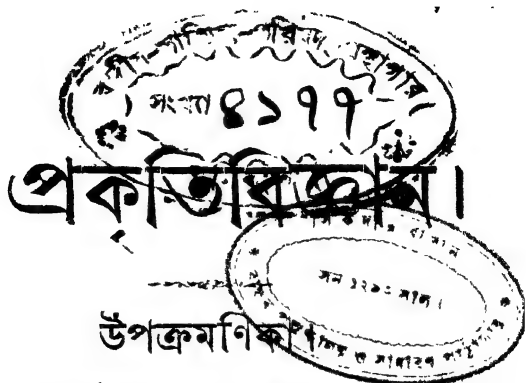 বঙ্গীয়-সাহিত্য-পরিষদ গ্রন্থাগার
সংখ্যা ৪১৭৭
প্রকৃতিবিজ্ঞান।
সন ১২৯০ সাল।
উপক্রমণিকা